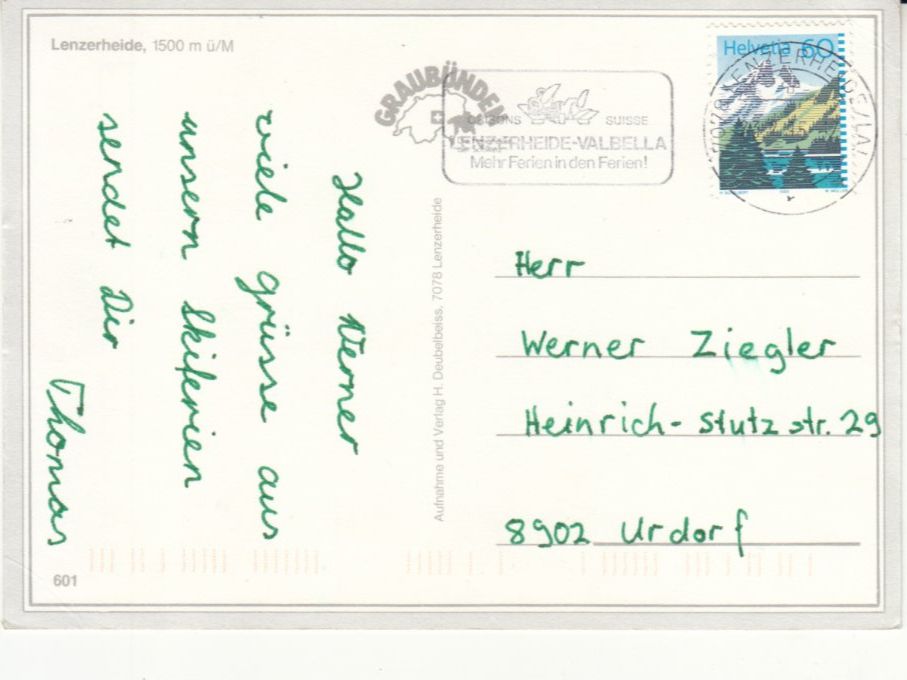 Lenzerheide, 1500 m ü/M
GRAUBÜNDEN
GRISONS SUISSE
LENZERHEIDE-VALBELLA
Mehr Ferien in den Ferien!
Helvetia 60
7078 LENZERHEIDE/LAI
Hallo Werner
viele grüsse aus
unsern Skiferien
sendet Dir
Thomas
Aufnahme und Verlag H. Deubelbeiss, 7078 Lenzerheide
Herr
Werner Ziegler
Heinrich-Stutzstr. 29
8902 Urdorf
601